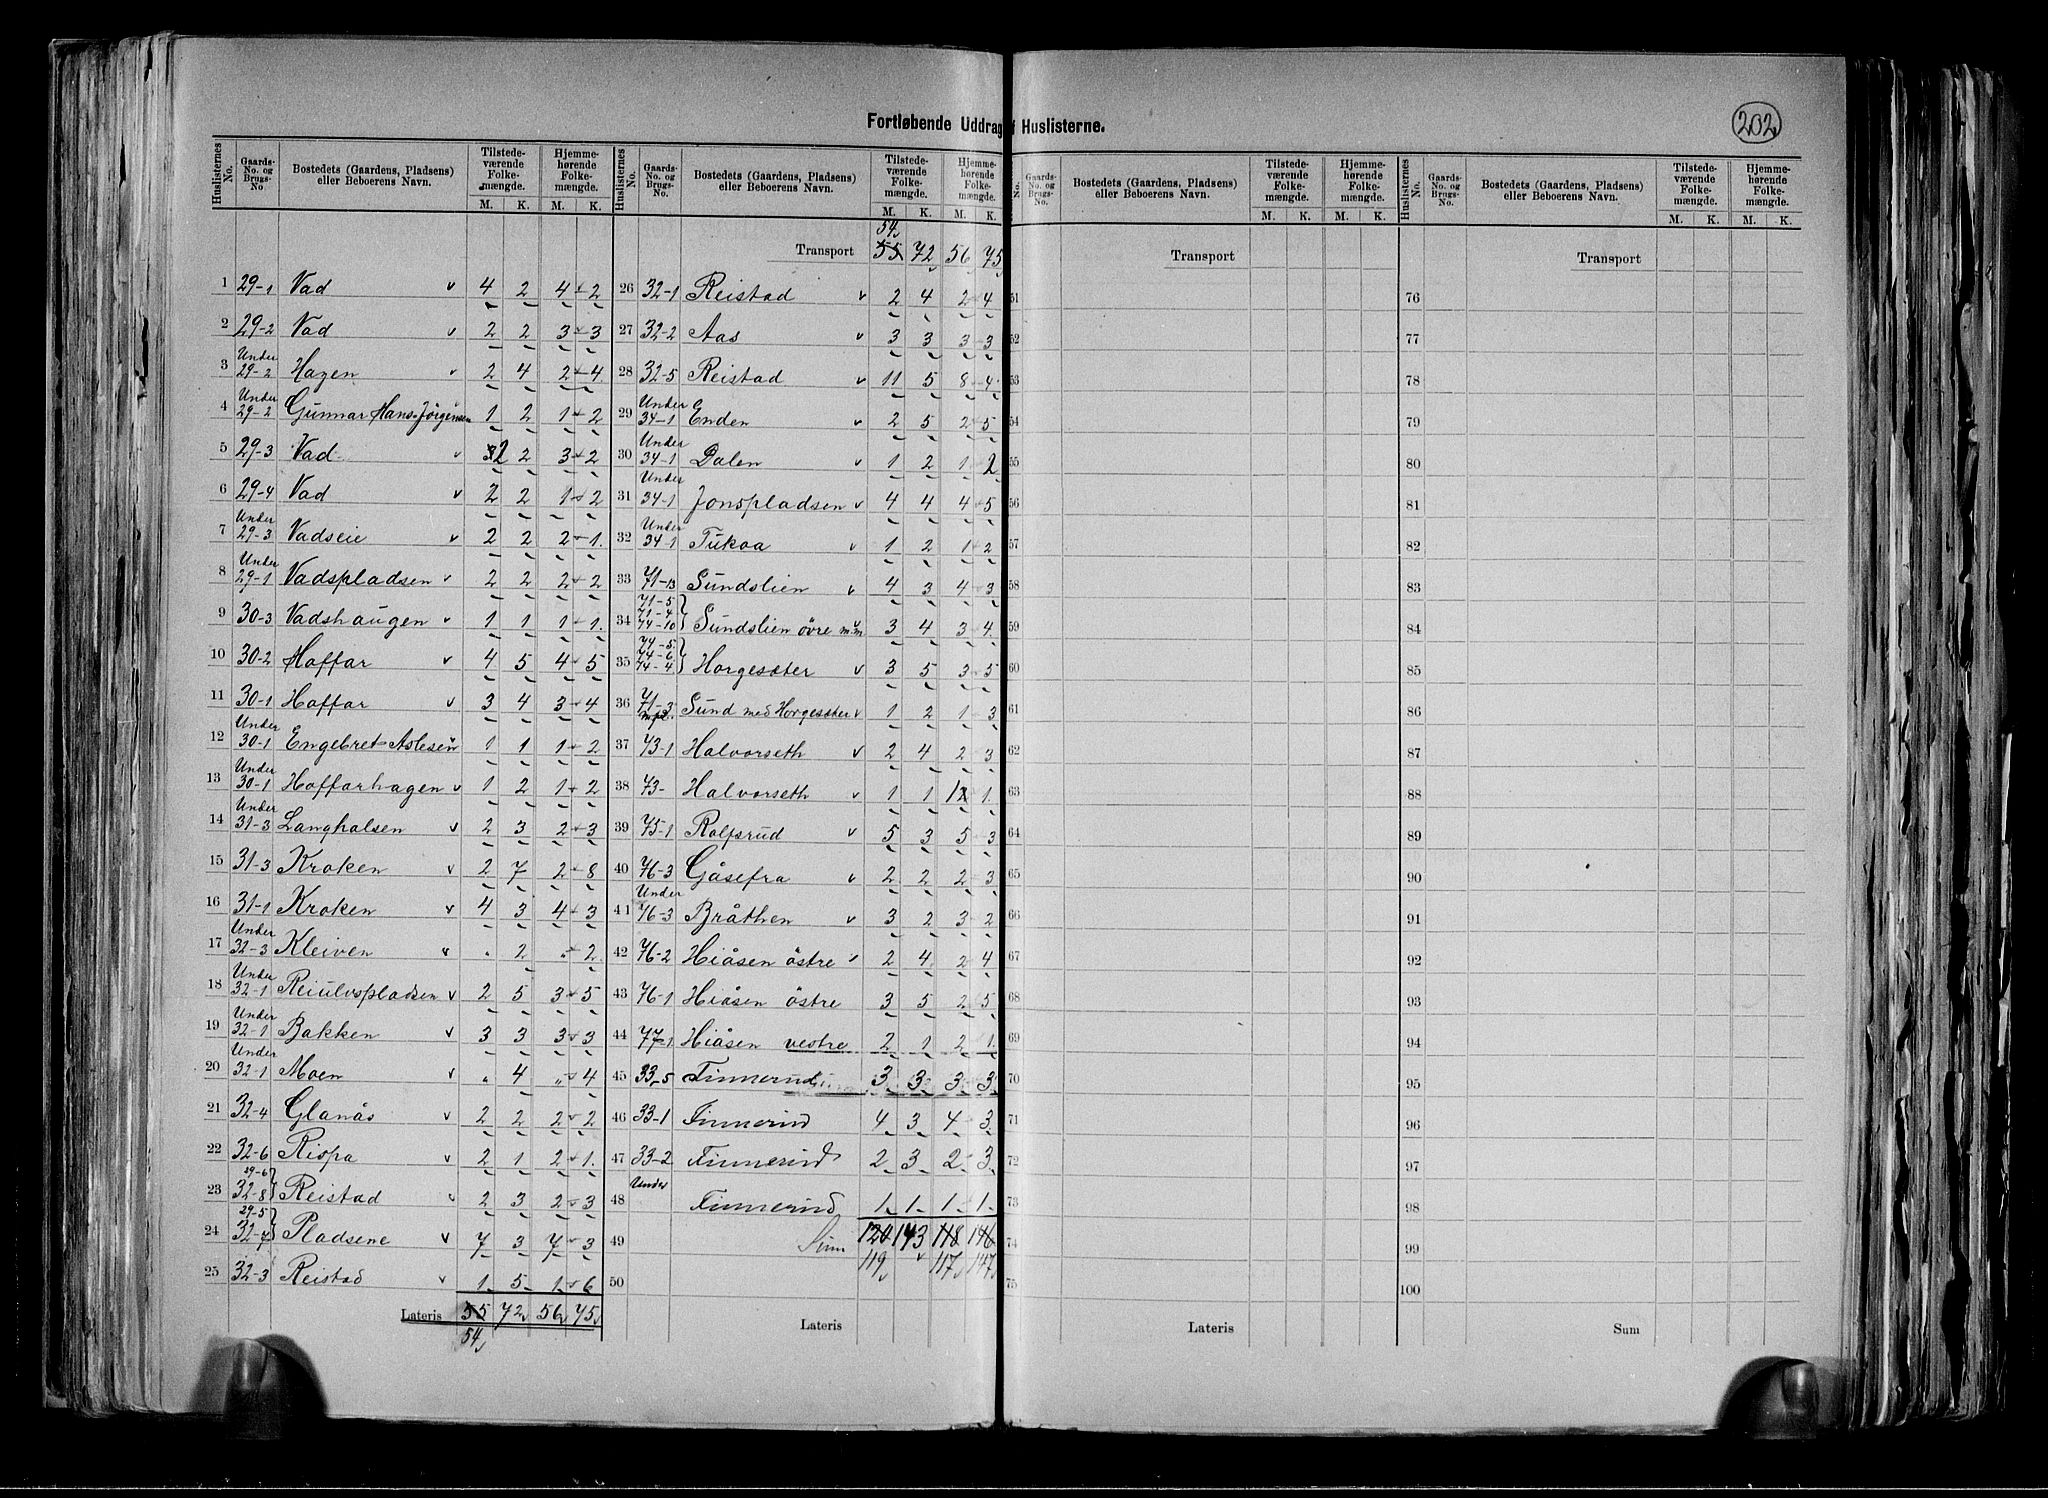 202
Fortløbende Uddrag f Huslisterne.
Huslisternes No. Gaards-No. og Brugs-No Bostedets (Gaardens, Pladsens) eller Beboerens Navn. Tilstedeværende Folkemængde. M. K. Hjemmehørende Folkemængde. M. K.
1 29-1 Vad v 4 2 4 2
2 29-2 Vad v 2 2 3 3
3 Under 29-2 Hagen v 2 4 2 4
4 Under 29-2 Gunnar Hans-Jörgensen 1 2 1 2
5 29-3 Vad v 2 2 3 2
6 29-4 Vad v 2 2 1 2
7 Under 29-3 Vadseie v 2 2 2 1.
8 Under 29-1 Vadspladsen v 2 2 2 2
9 30-3 Vadshaugen v 1 1 1 1.
10 30-2 Hoffar v 4 5 4 5
11 30-1 Hoffar v 3 4 3 4
12 Under 30-1 Engebret Aslesen 1 1 1 2
13 Under 30-1 Hoffarhagen v 1 2 1 2
14 Under 31-3 Langhalsen v 2 3 2 3
15 31-3 Kroken v 2 7 2 8
16 31-1 Kroken v 4 3 4 3
17 Under 32-3 Kleiven v " 2 " 2
18 Under 32-1 Reiulvspladsen v 2 5 3 5
19 Under 32-1 Bakken v 3 3 3 3
20 Under 32-1 Moen v " 4 " 4
21 32-4 Glanås v 2 2 2 2
22 32-6 Rispa v 2 1 2 1.
23 29-6 32-8 } Reistad v 2 3 2 3
24 29-5 32-7 } Pladsene v 7 3 7 3
25 32-3 Reistad v 1 5 1 6
Lateris 55 72 56 75
54
Huslisternes No. Gaards-No. og Brugs-No. Bostedets (Gaardens, Pladsens) eller Beboerens Navn. Tilstedeværende Folkemængde. M. K. Hjemmehørende Folkemængde. M. K.
54
Transport 55 72 56 75
26 32-1 Reistad v 2 4 2 4
27 32-2 Aas v 3 3 3 3
28 32-5 Reistad v 11 5 8 4
29 Under 34-1 Enden v 2 5 2 5
30 Under 34-1 Dalen v 1 2 1 2
31 Under 34-1 Jonspladsen v 4 4 4 5
32 Under 34-1 Tukoa v 1 2 1 2
33 71-13 Sundslien v 4 3 4 3
34 71-5 71-4 74-10 } Sundslien övre m.m 3 4 3 4
35 74-5 74-6 74-4 } Horgesæter v 3 5 3 5
36 71-3 Sund med Horgesæter v 1 2 1 3
37 73-1 Halvorseth v 2 4 2 3
38 73- Halvorseth v 1 1 1 1
39 75-1 Rolfsrud v 5 3 5 3
40 76-3 Gåsefra v 2 2 2 3
41 Under 76-3 Bråthen v 3 2 3 2
42 76-2 Hiåsen östre v 2 4 2 4
43 76-1 Hiåsen östre 3 5 2 5
44 77-1 Hiåsen vestre 2 1 2 1.
45 33-5 Finnerud 3 3 3 3
46 33-1 Finnerud 4 3 4 3
47 33-2 Finnerud 2 3 2 3
48 Under Finnerud 1 1 1 1
49 Sum 120 143 118 146
50 119 v 117 147
Lateris
No. Gaards-No. og Brugs-No. Bostedets (Gaardens, Pladsens) eller Beboerens Navn. Tilstedeværende Folkemængde. M. K. Hjemmehørende Folkemængde. M. K.
Transport
51
52
53
54
55
56
57
58
59
60
61
62
63
64
65
66
67
68
69
70
71
72
73
74
75
Lateris
Huslisternes No. Gaards-No. og Brugs-No. Bostedets (Gaardens, Pladsens) eller Beboerens Navn. Tilstedeværende Folkemængde. M. K. Hjemmehørende Folkemængde. M. K.
Transport
76
77
78
79
80
81
82
83
84
85
86
87
88
89
90
91
92
93
94
95
96
97
98
99
100
Sum